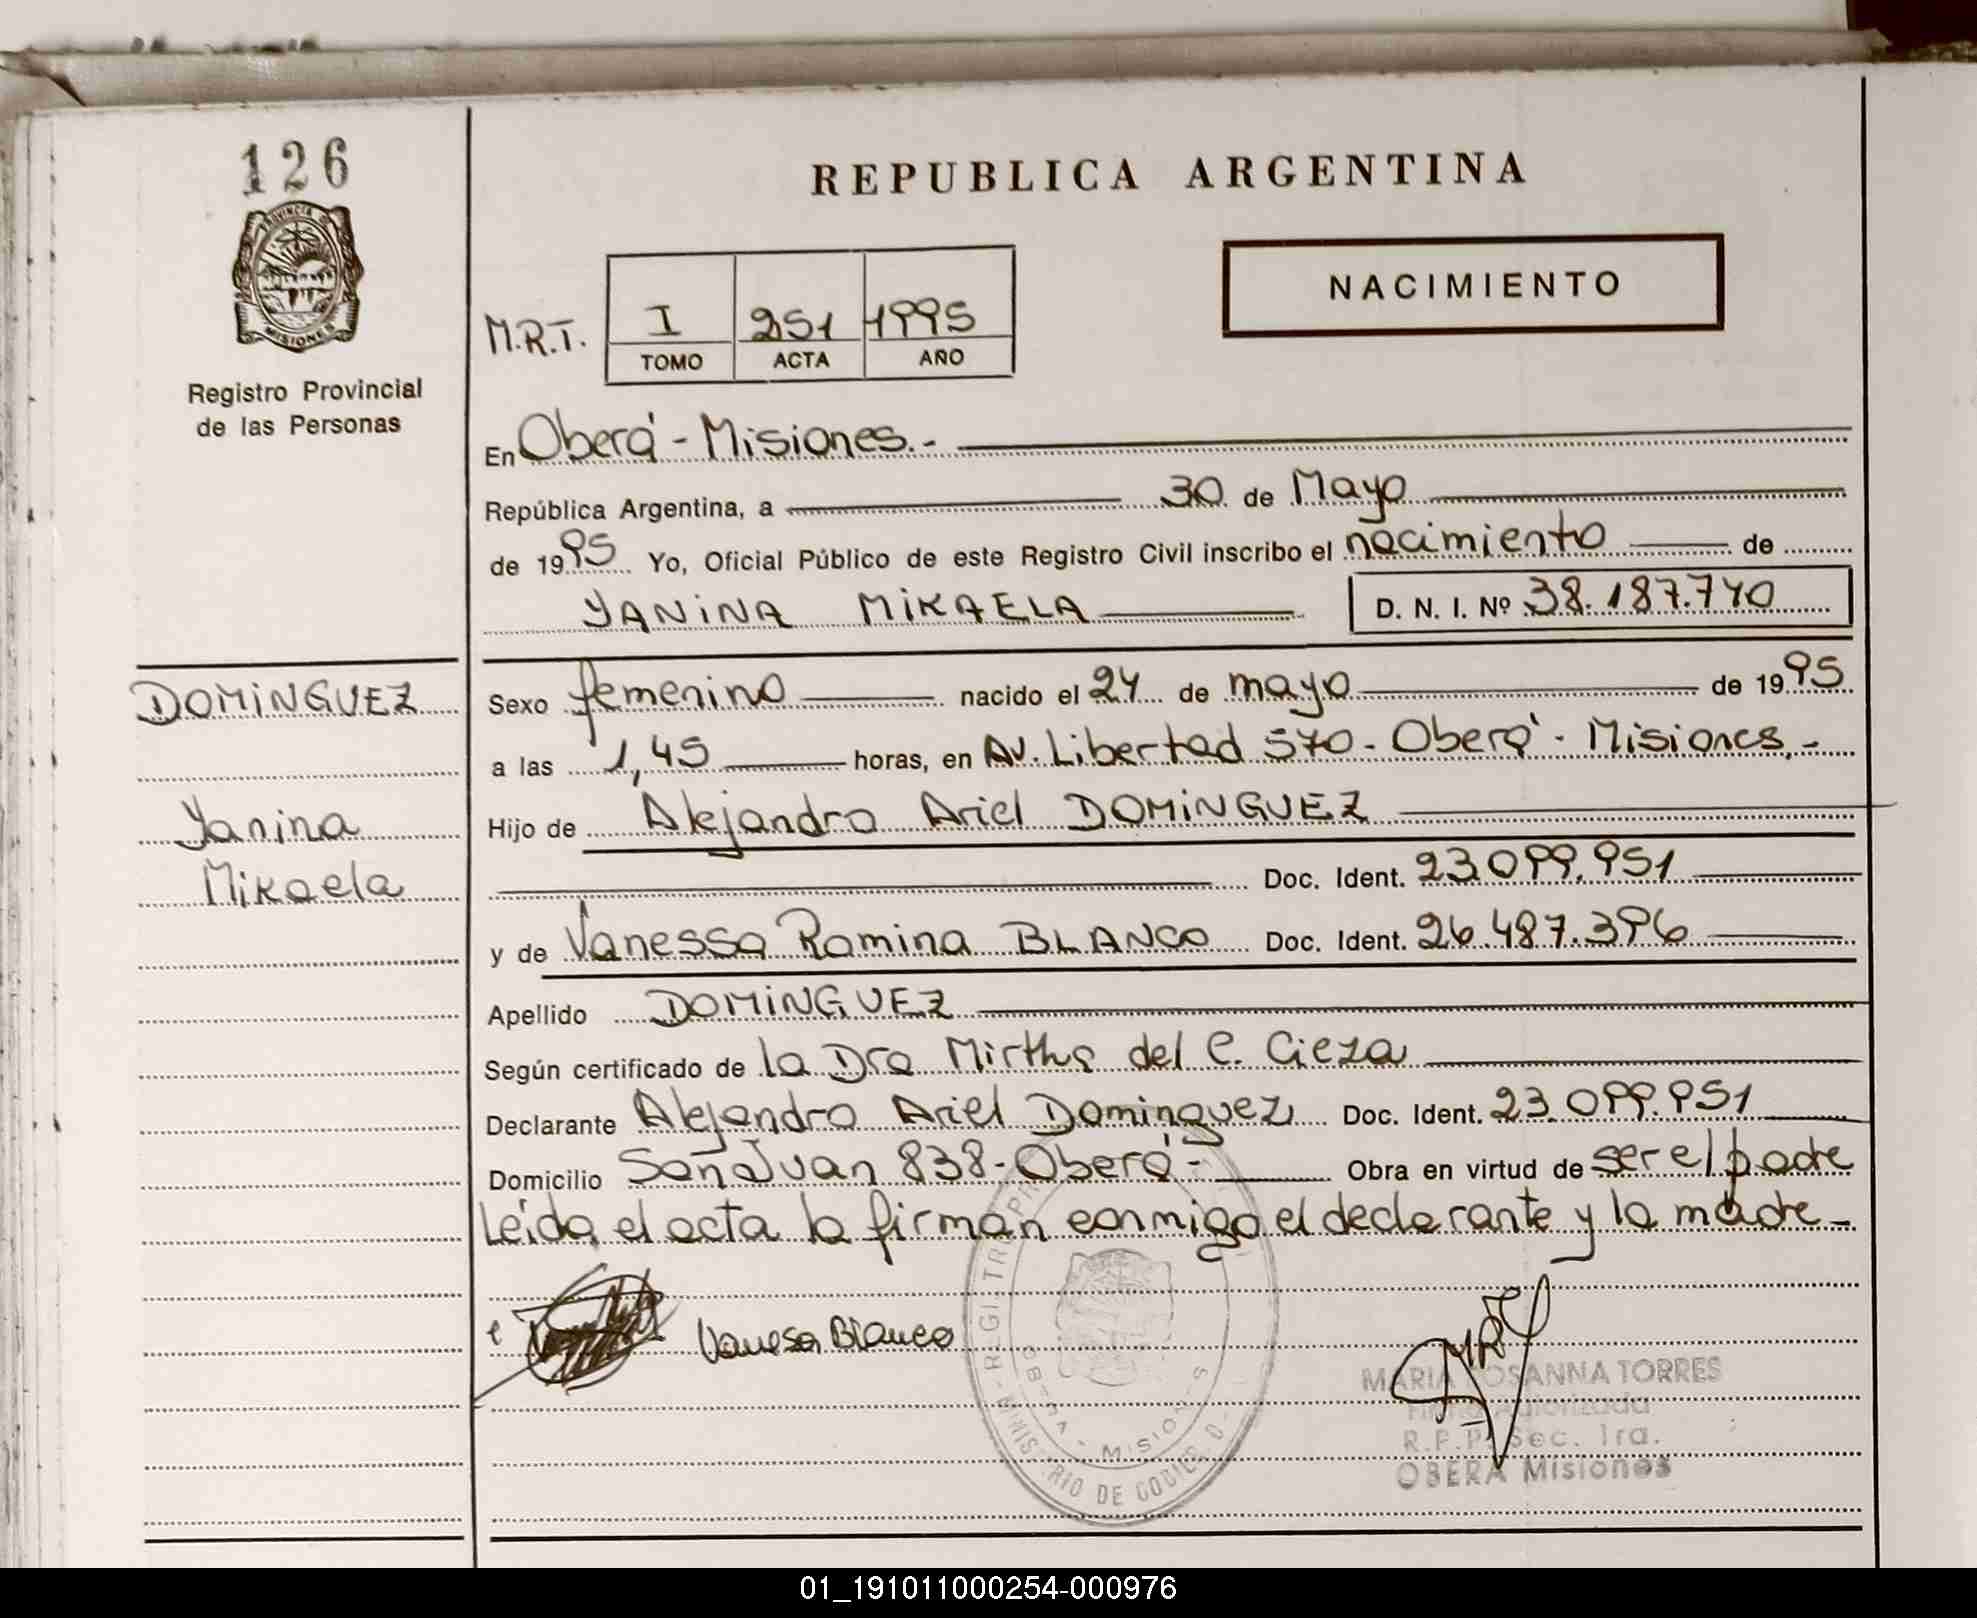 126
REPUBLICA ARGENTINA
NACIMIENTO
PROVINCIA D
MISIONES
Registro Provincial
de las Personas
M.R.T. I 251 1995
TOMO ACTA AÑO
En Oberá - Misiones.-
República Argentina, a 30 de Mayo
de 1995 Yo, Oficial Público de este Registro Civil inscribo el nacimiento de
YANINA MIKAELA D. N. I. Nº 38.187.740
DOMINGUEZ
Yanina
Mikaela
Sexo femenino nacido el 24 de mayo de 1995
a las 1,45 horas, en Av. Libertad 570 - Oberá - Misiones.-
Hijo de Alejandro Ariel DOMINGUEZ
Doc. Ident. 23.099.951
y de Vanessa Romina BLANCO Doc. Ident. 26.487.396
Apellido DOMINGUEZ
Según certificado de la Dra Mirtha del C. Cieza
Declarante Alejandro Ariel Dominguez Doc. Ident. 23.099.951
Domicilio San Juan 838 - Oberá - Obra en virtud de ser el padre
Leída el acta la firman conmigo el declarante y la madre -
Vanesa Blanco
MARIA ROSANNA TORRES
Firma Autorizada
R.P.P. Sec. 1ra.
OBERA Misiones
OBERA - MISIONES
MINISTERIO DE GOBIERNO
01_191011000254-000976